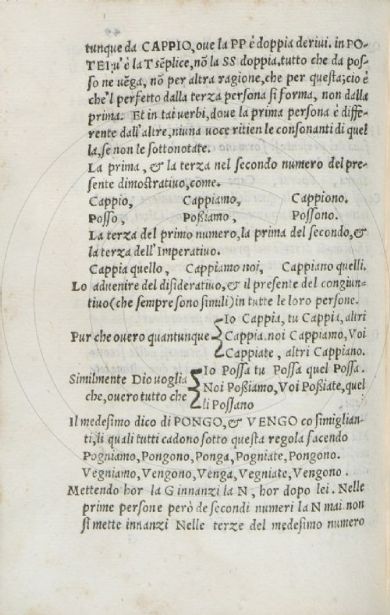 tunque da CAPPIO, oue la PP è doppia deriui. in PO-
TEI u' è la T sẽplice, nõ la SS doppia, tutto che da pos-
so ne vẽga, nõ per altra ragione, che per questa; cio è
che'l perfetto dalla terza persona si forma, non dalla
prima. Et in tai verbi, doue la prima persona è diffe-
rente dall'altre, niuna voce ritien le consonanti di quel
la, se non le sottonotate.
La prima, & la terza nel secondo numero del pre-
sente dimostratiuo, come.
Cappio, Cappiamo, Cappiono.
Posso, Possiamo, Possono.
La terza del primo numero, la prima del secondo, &
la terza dell'Imperatiuo.
Cappia quello, Cappiamo noi, Cappiano quelli.
Lo aduenire del disideratiuo, & il presente del congiun-
tiuo (che sempre sono simili) in tutte le loro persone.
Io Cappia, tu Cappia, altri
Pur che ouero quantunque Cappia. noi Cappiamo, Voi
Cappiate, altri Cappiano.
Io Possa tu Possa quel Possa.
Similmente Dio uoglia Noi Possiamo, Voi Possiate, quel
che, ouero tutto che li Possano
Il medesimo dico di PONGO, & VENGO co simiglian-
ti, li quali tutti cadono sotto questa regola facendo
Pogniamo, Pongono, Ponga, Pogniate, Pongono.
Vegniamo, Vengono, Venga, Vegniate, Vengono.
Mettendo hor la G innanzi la N, hor dopo lei. Nelle
prime persone però de secondi numeri la N mai non
si mette innanzi Nelle terze del medesimo numero